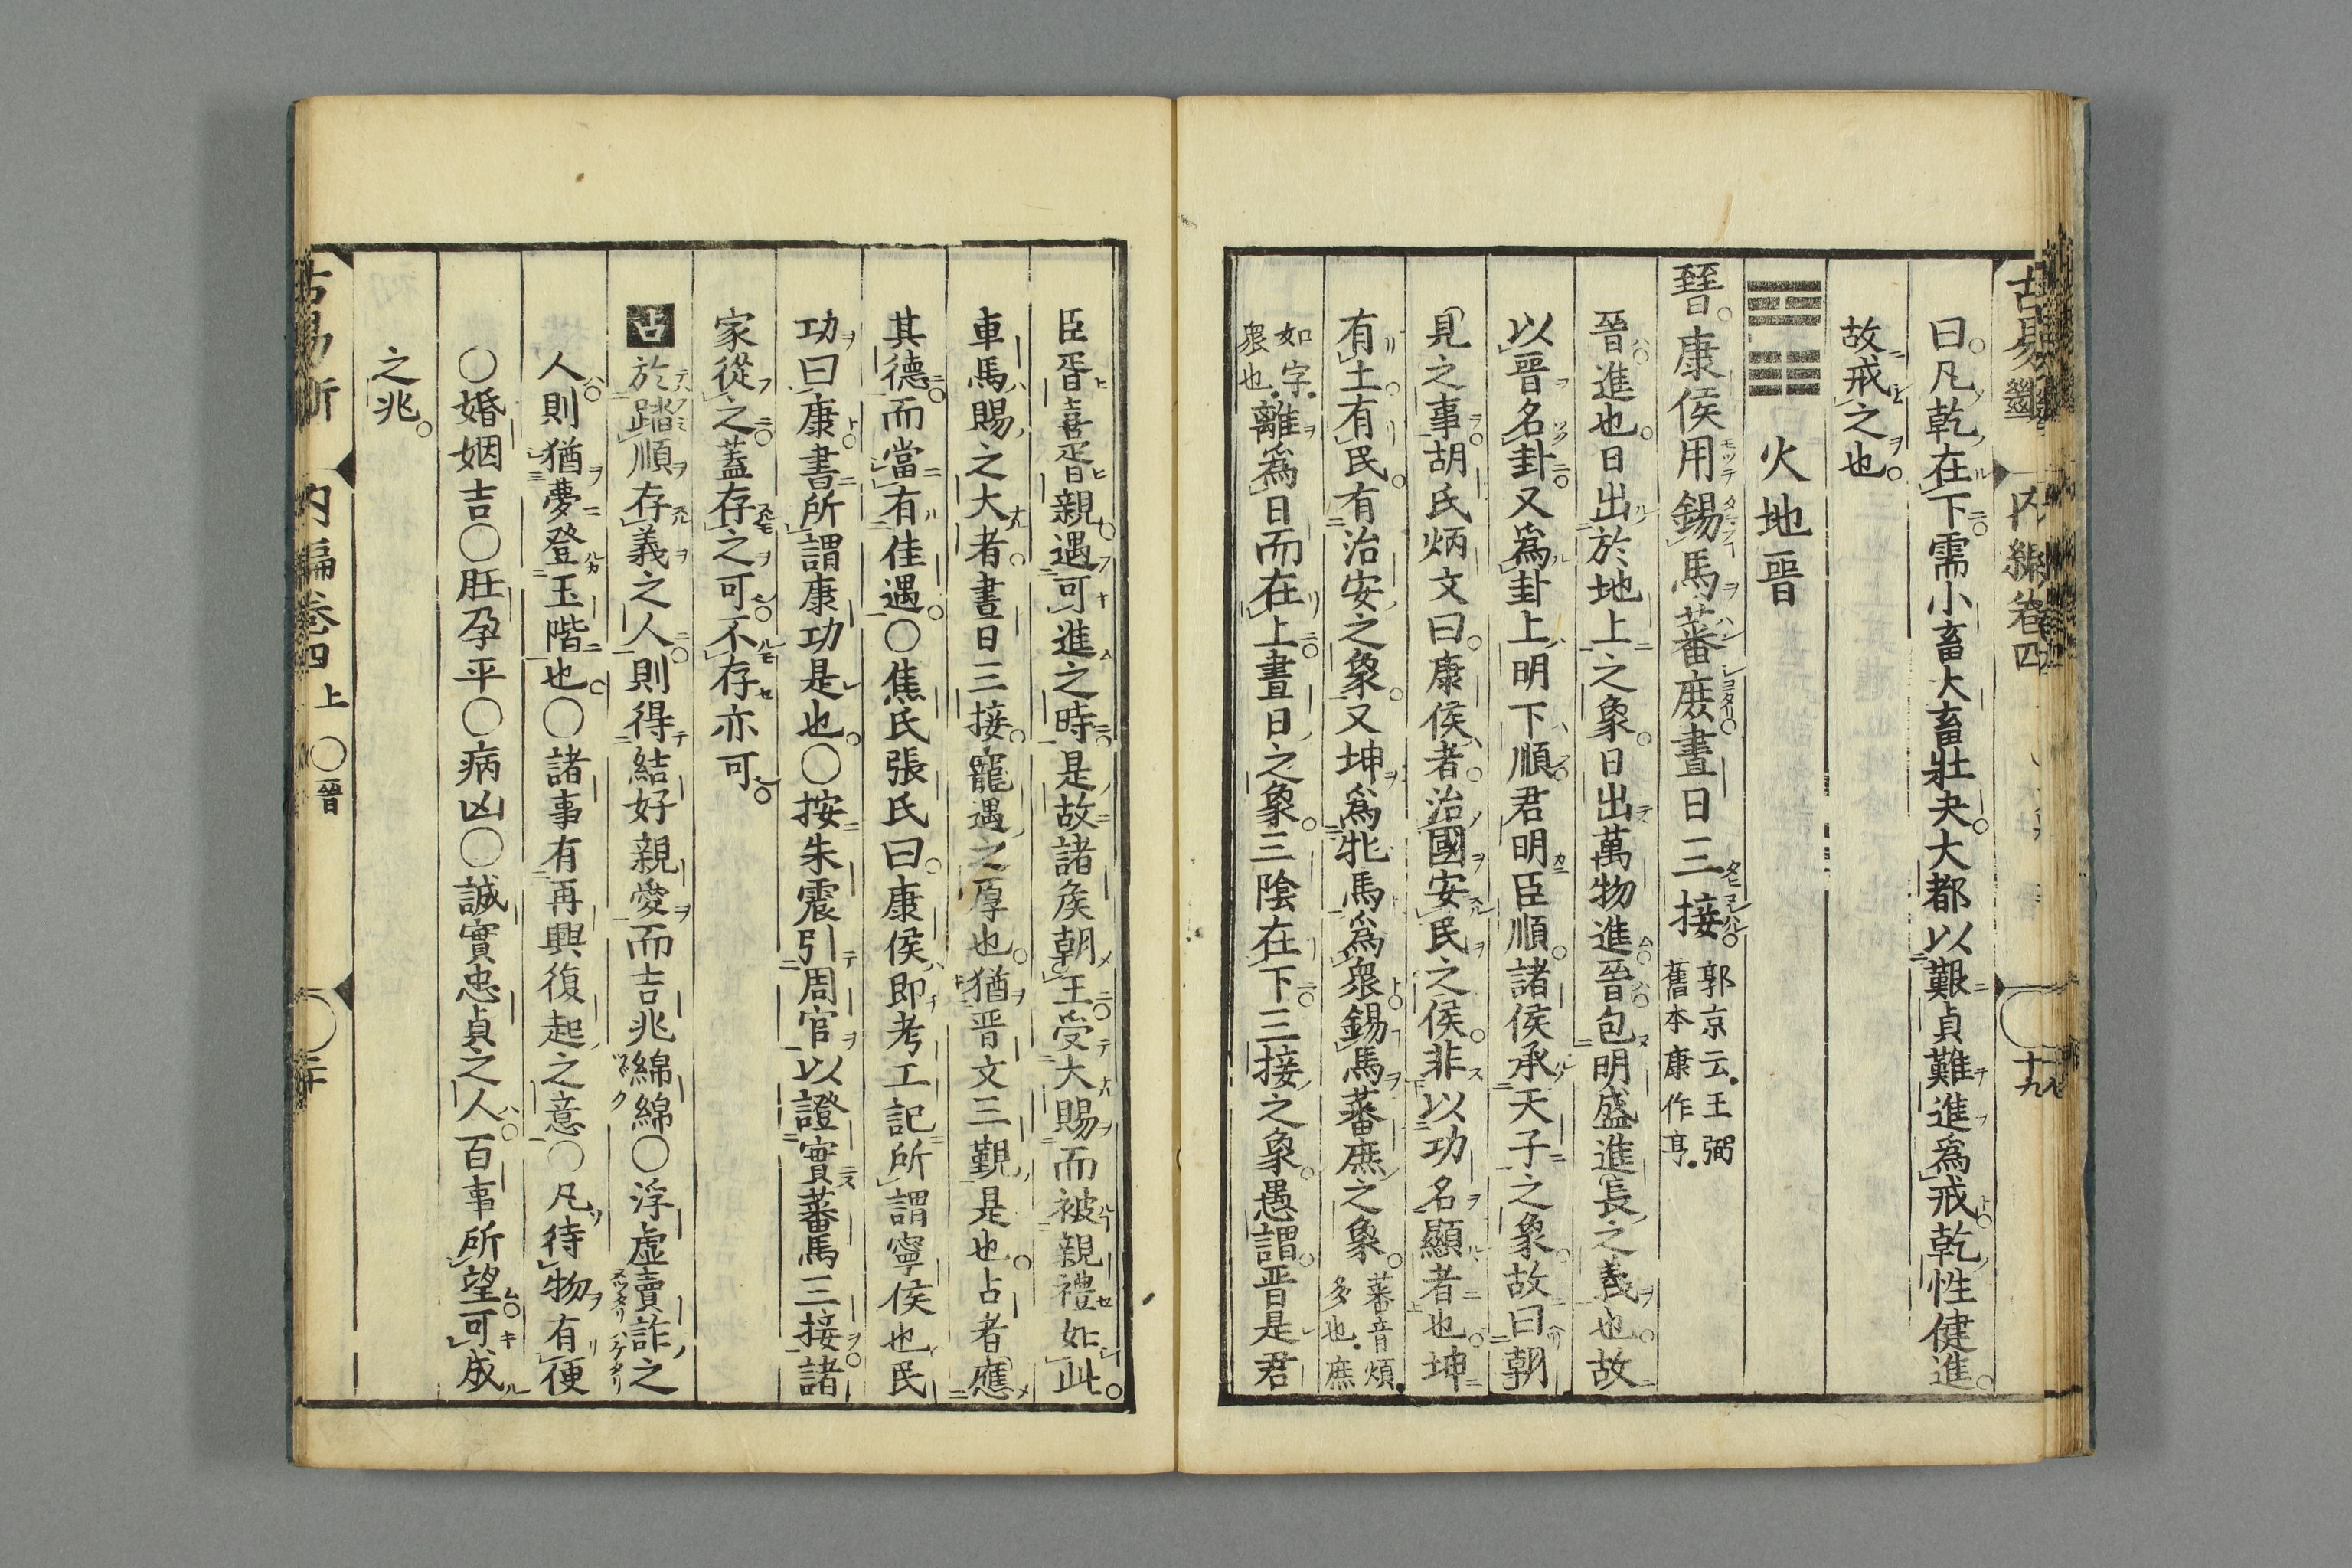 古易斷 内編卷四 十九
曰凡乾在下需小畜大畜壯夬大都以艱貞難進爲戒乾性健進
故戒之也
火地晋
晉康侯用錫馬蕃庶晝日三接 郭京云王弼舊本康作亨
晉進也日出於地上之象日出萬物進晉包明盛進長之義也故
以晋名卦又爲卦上明下順君明臣順諸侯承天子之象故曰朝
見之事胡氏炳文曰康侯者治國安民之侯非以功名顯者也坤
有土有民有治安之象又坤爲牝馬爲衆錫馬蕃庶之象 蕃音煩多也庶
如字衆也離爲日而在上晝日之象三陰在下三接之象愚謂晋是君
臣胥喜胥親遇可進之時是故諸侯朝王受大賜而被親禮如此
車馬賜之大者晝日三接寵遇之厚也猶晋文三覲是也占者應
其德而當有佳遇○焦氏張氏曰康侯即考工記所謂寧侯也民
功曰康書所謂康功是也○按朱震引周官以證實蕃馬三接諸
家從之蓋存之可不存亦可
占於踏順存義之人則得結好親愛而吉兆綿綿○浮虛賣詐之
人則猶夢登玉階也○諸事有再興復起之意○凡待物有便
○婚姻吉○胎孕平○病凶○誠實忠貞之人百事所望可成
之兆
古易斷 内編卷四上 ○晉 二十